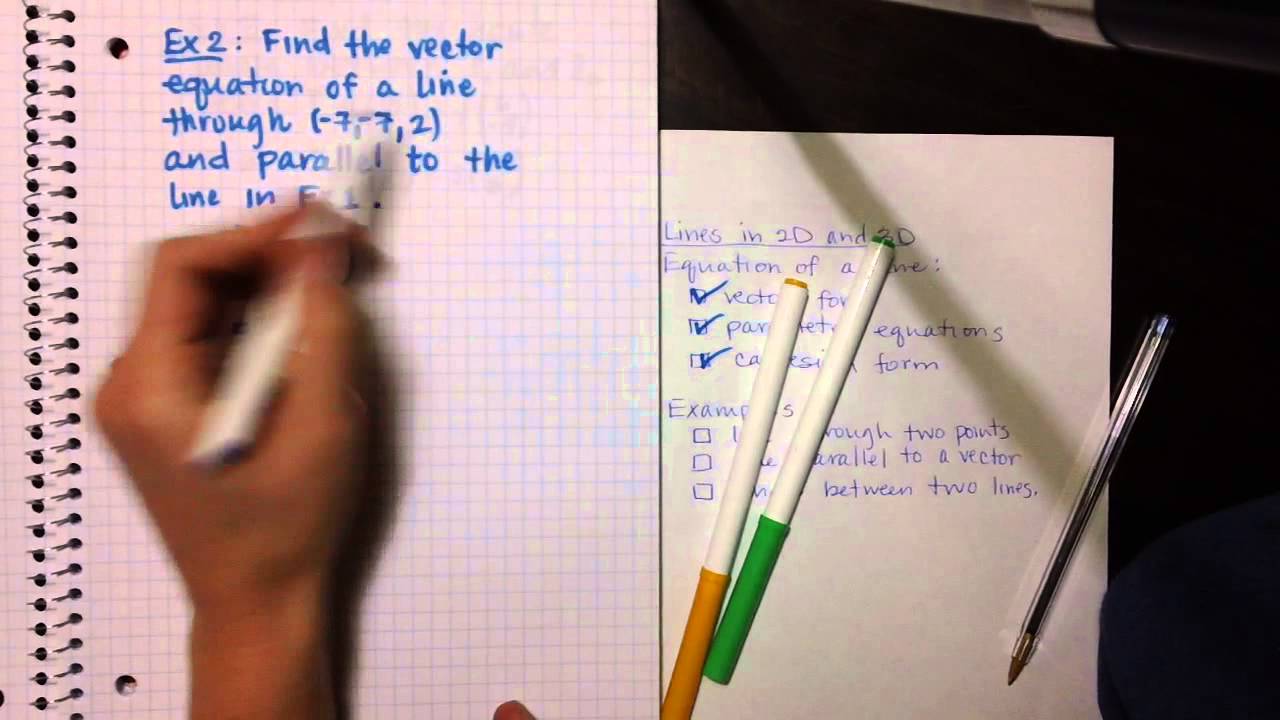 Ex 2: Find the vector
equation of a line
through (-7,-7,2)
and parallel to the
line in Ex 1.
Lines in 2D and 3D
Equation of a line:
vector form
parametric equations
cartesian form
Examples
through two points
parallel to a vector
between two lines.